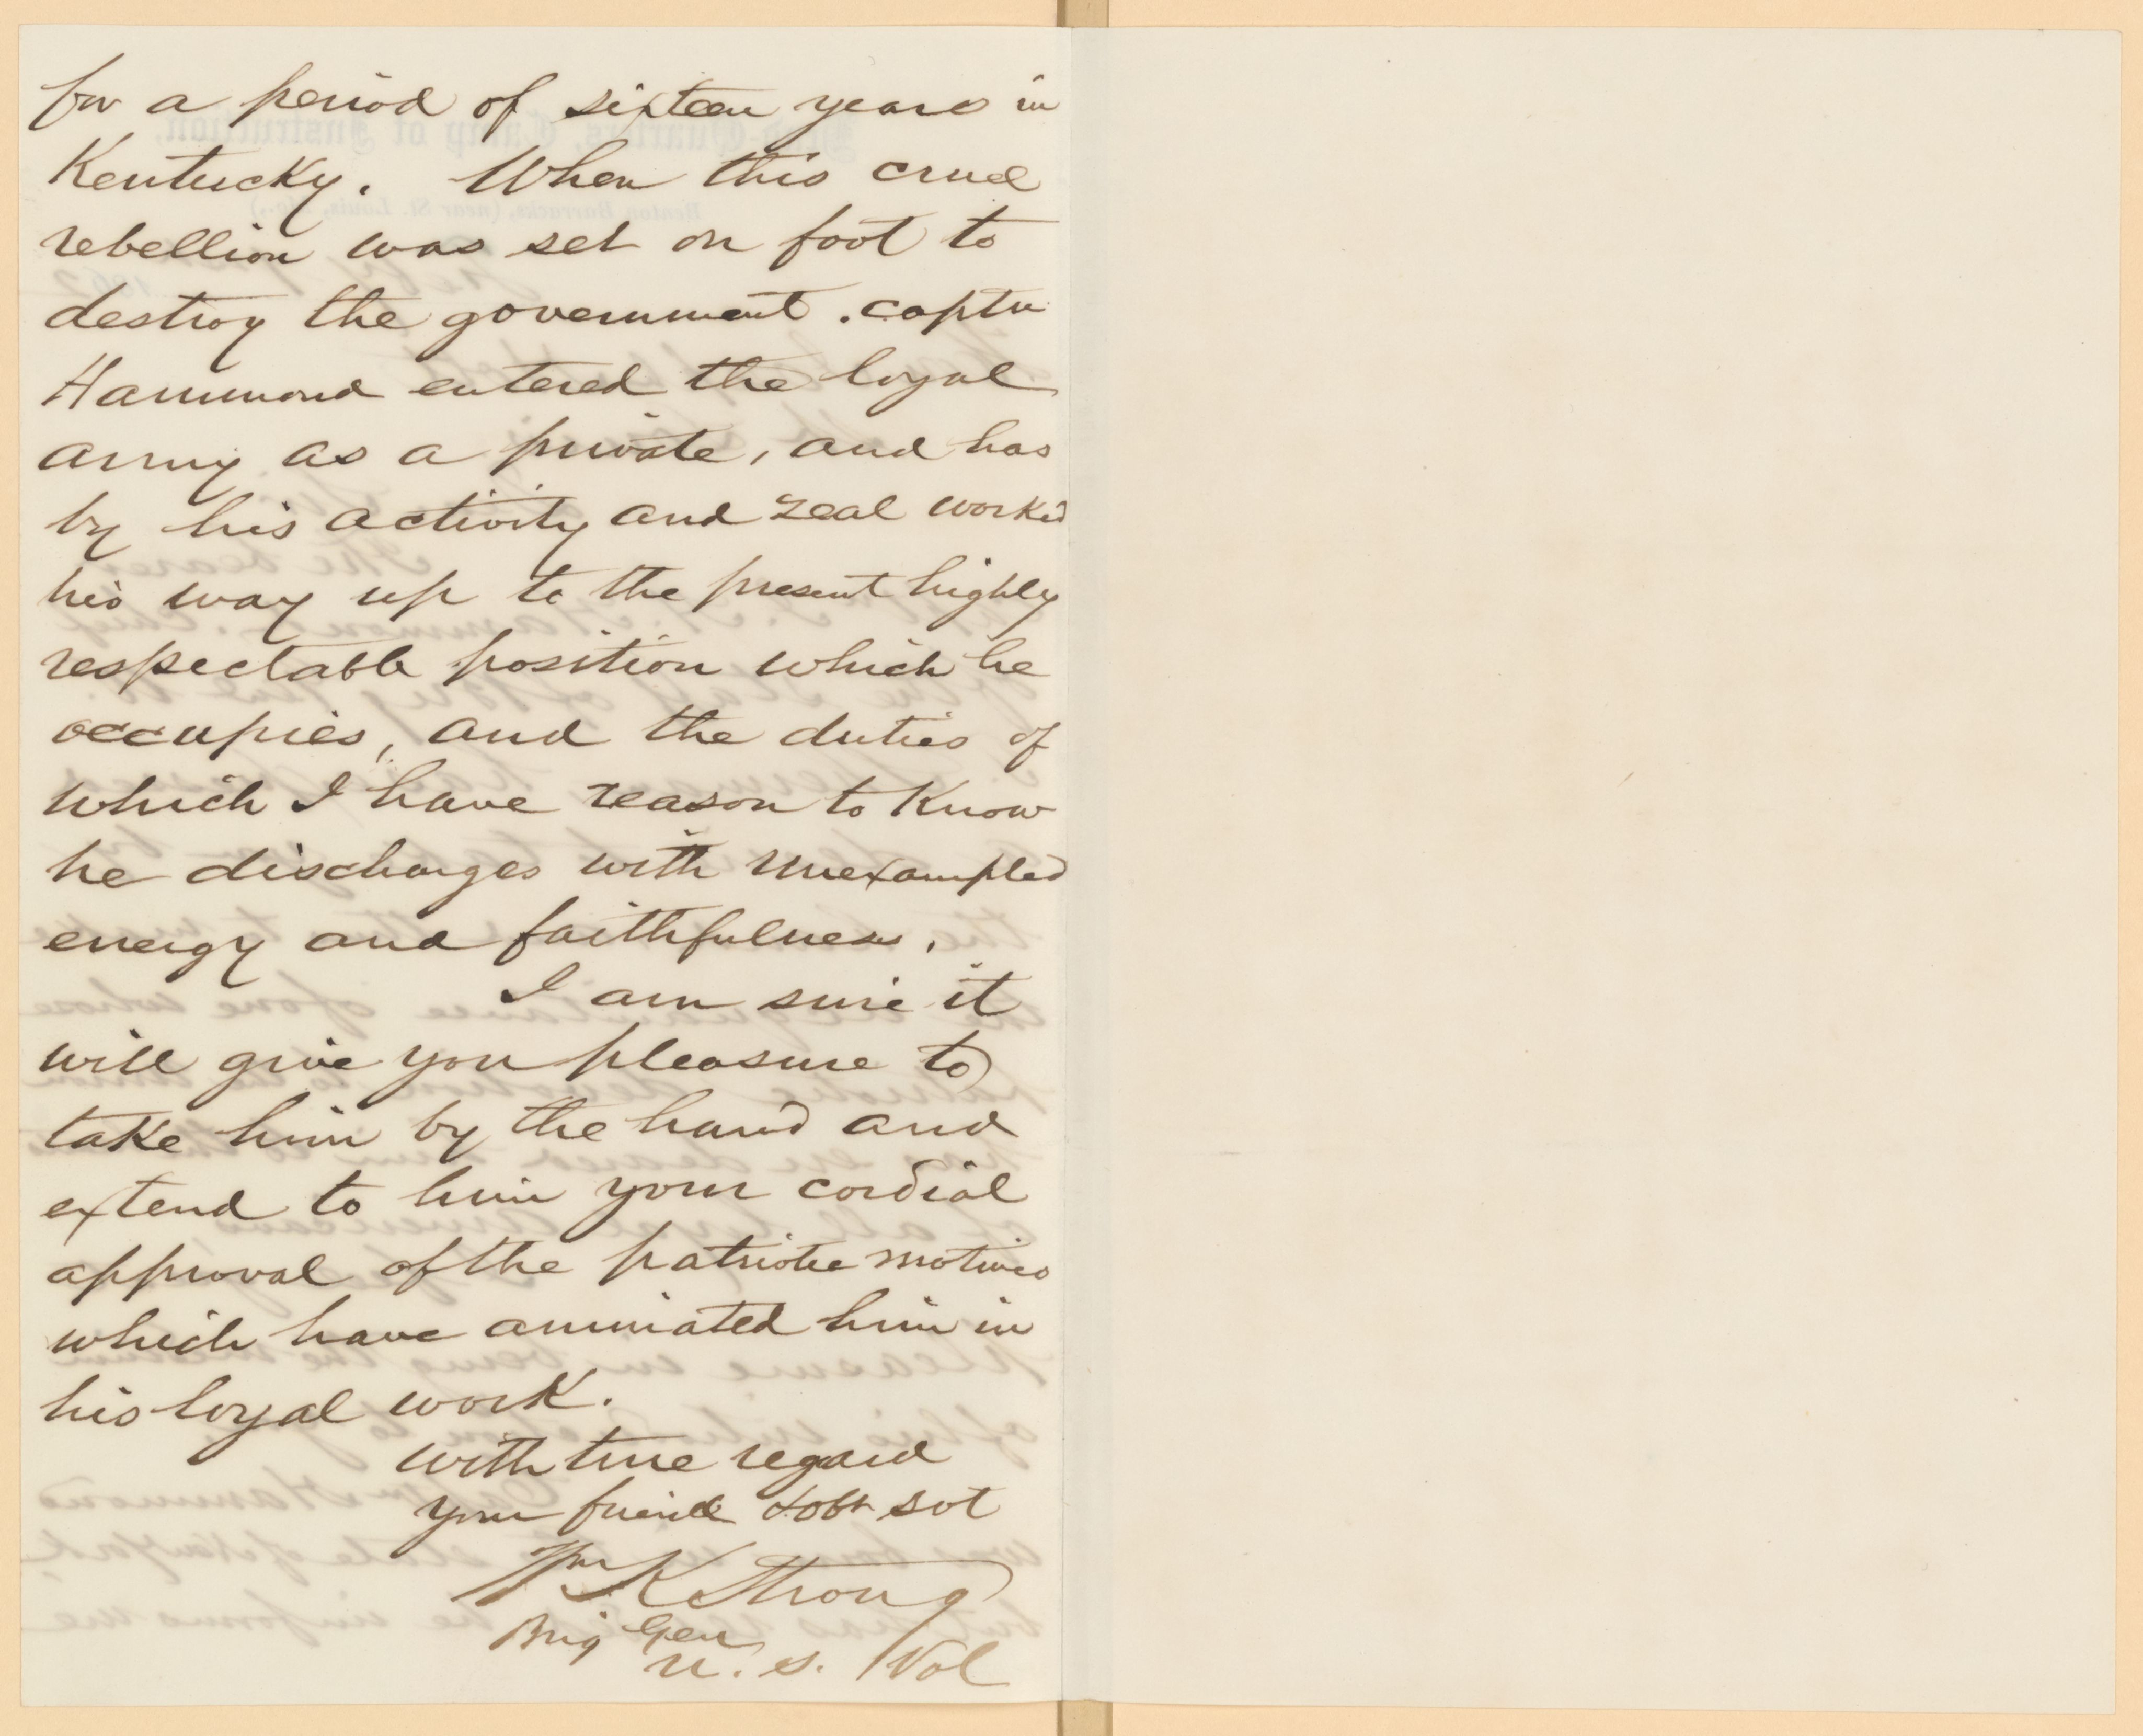 for a period of sixteen years in
Kentucky. When this cruel
rebellion was set on foot to
destroy the government. captn
Hammond entered the loyal
army as a private, and has
by his activity and zeal worked
his way up to the present highly
respectable position which he
occupies, and the duties of
which I have reason to Know
he discharges with unexampled
energy and faithfulness.
I am sure it
will give you pleasure to
take him by the hand and
extend to him your cordial
approval of the patriotic motives
which have animated him in
his loyal work.
with true regard
your friend & obt svt
Wm K Strong
Brig Gen
U. S. Vol